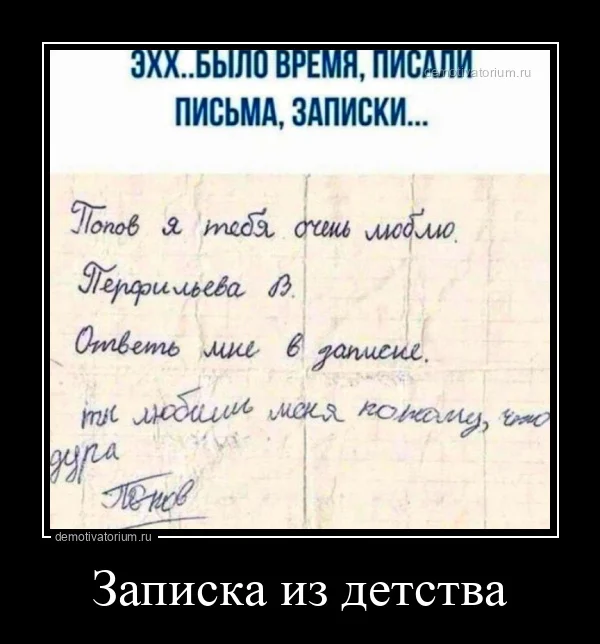 ЭХХ..БЫЛО ВРЕМЯ, ПИСАЛИ
demotivatorium.ru
ПИСЬМА, ЗАПИСКИ...
Попов я тебя очень люблю.
Перфильева В.
Ответь мне в записке.
ты любишь меня потому, что
дура
Попов
demotivatorium.ru
Записка из детства